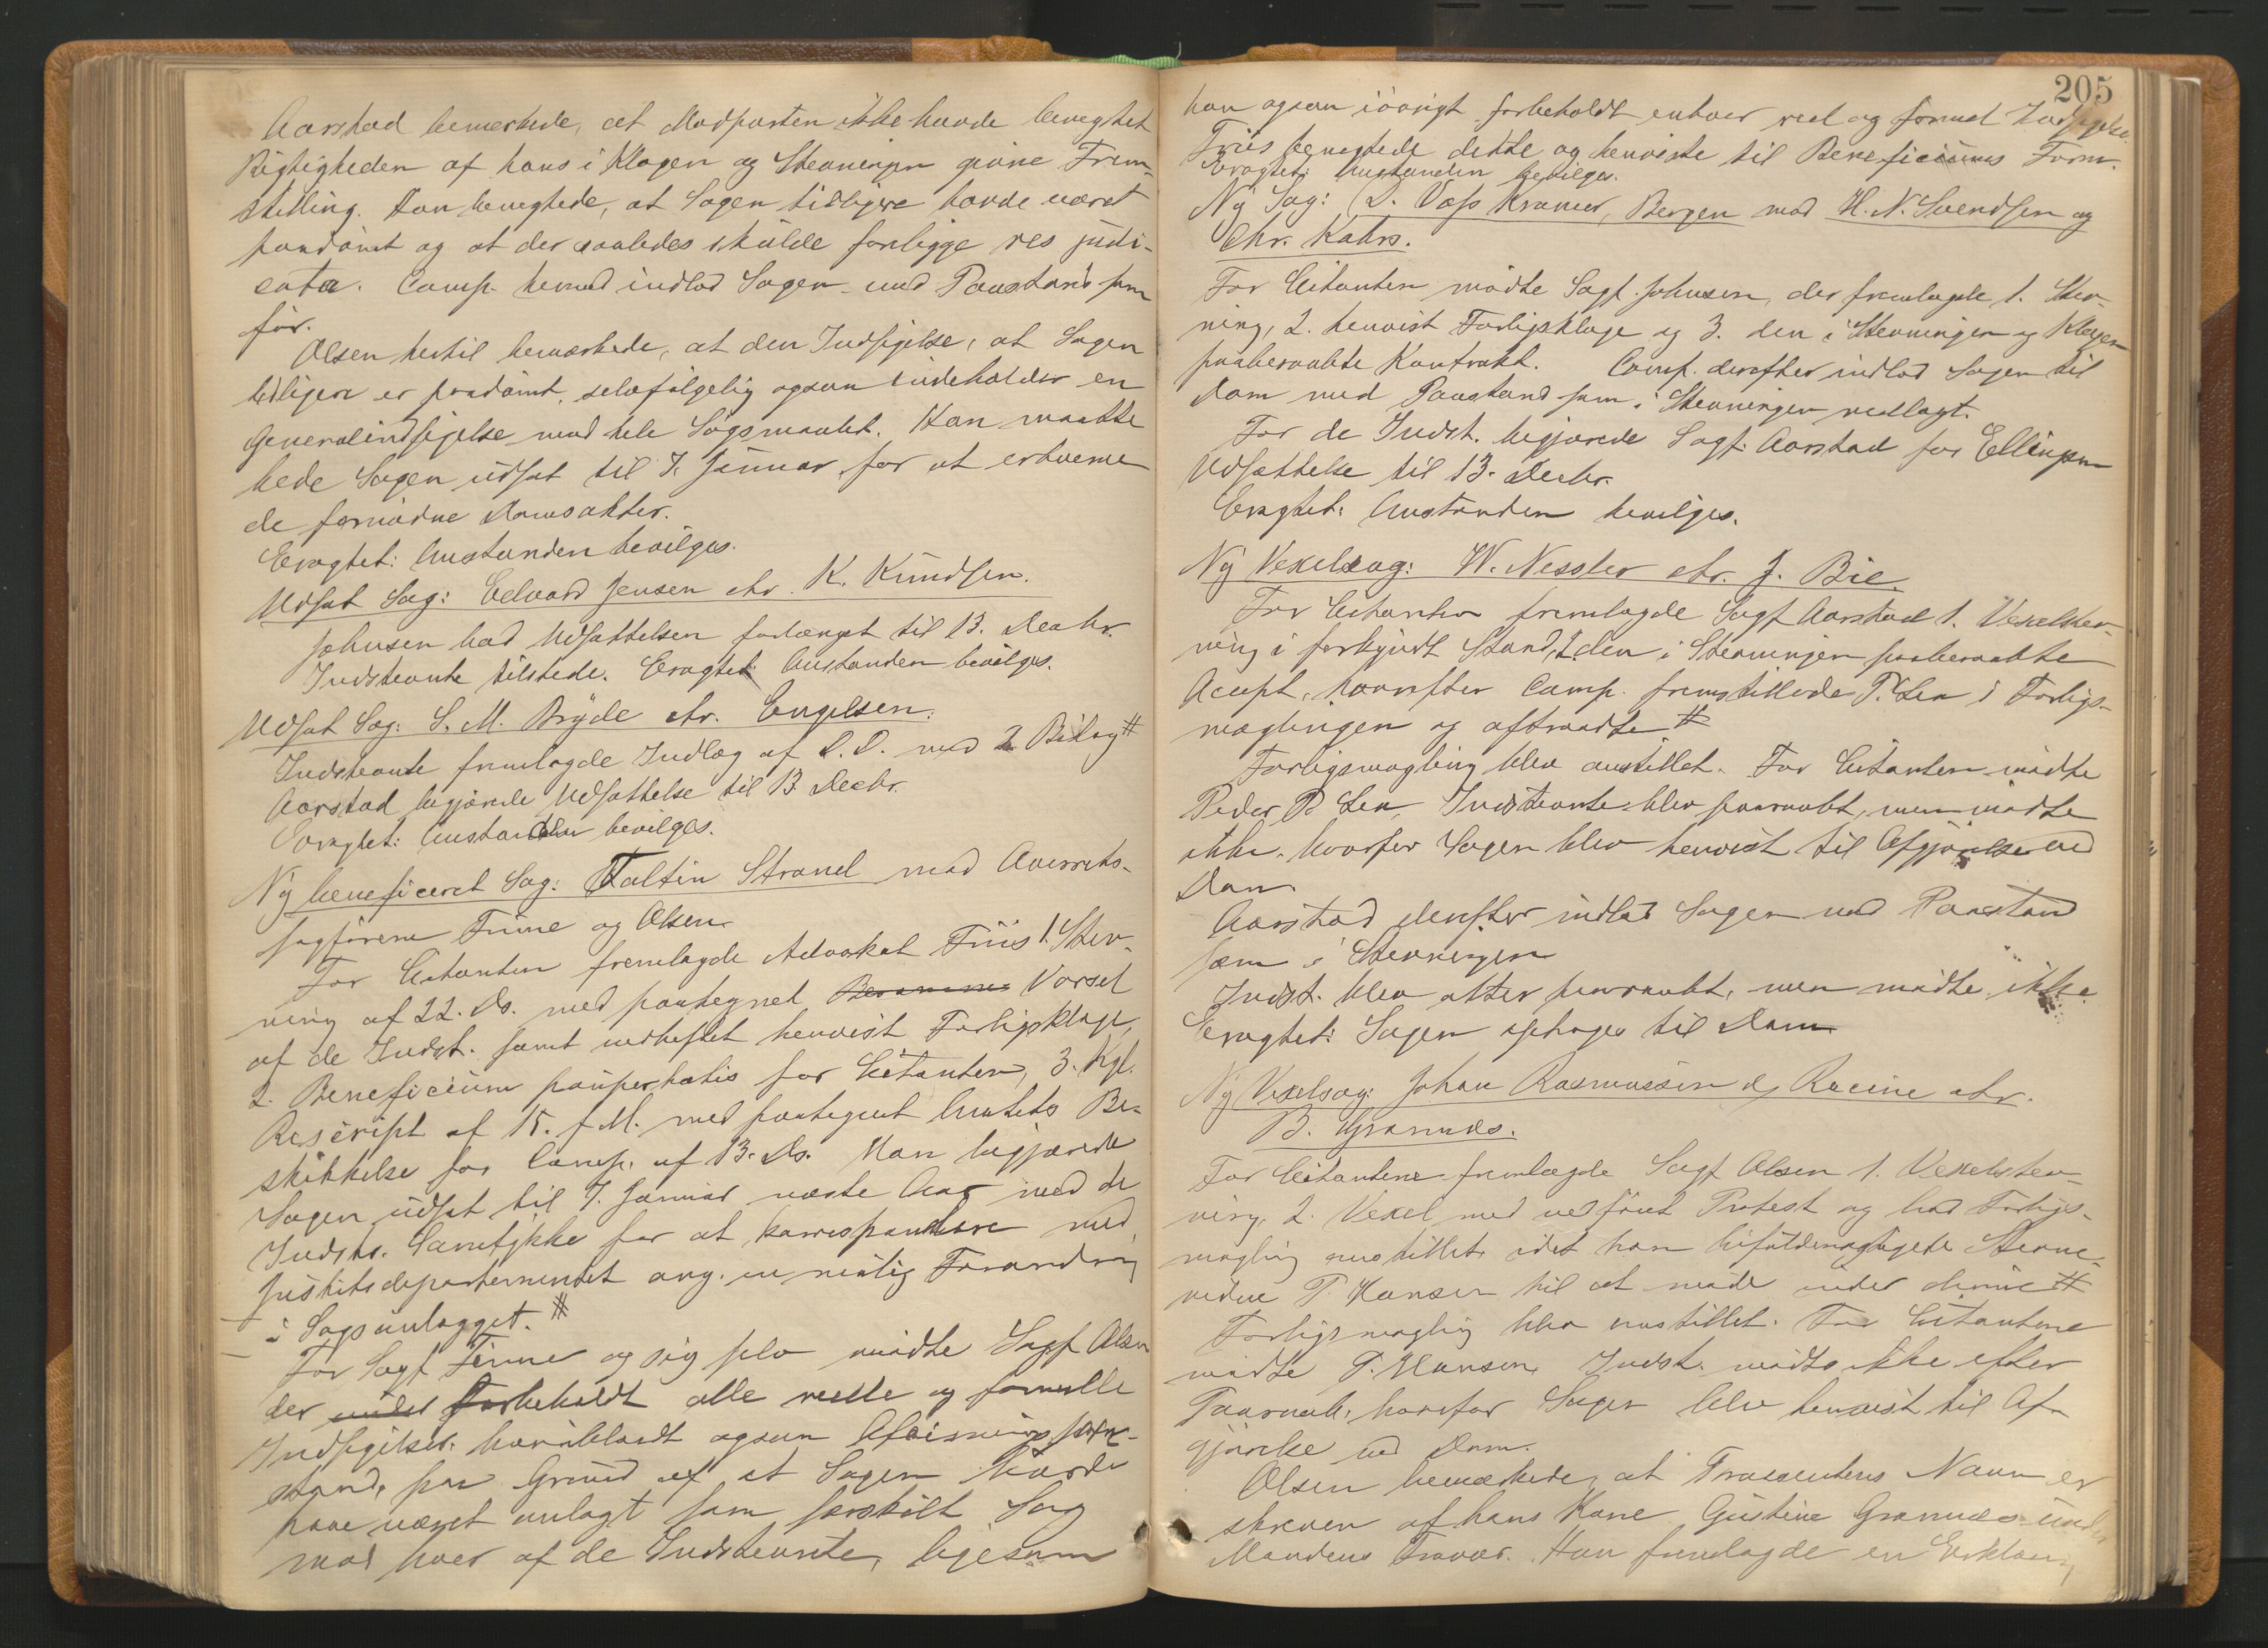 Aarstad bemerkede, at Modparten ikke havde benegtet
Rigtigheden af hans i Klagen og Stevningen givne Frem-
stilling. Han benegtede, at Sagen tidligere havde været
paadömt og at der saaledes skulde foreligge res judi-
cata. Comp. hermed indlod Sagen med Paastand som
för.
Olsen hertil bemærkede, at den Indsigelse, at Sagen
tidligere er paadömt, selvfölgelig ogsaa indeholder en
Generalindsigelse mod hele Sögsmaalet. Han maatte
bede Sagen udsat til 7. Januar for at erhverve
de fornödne Domsakter.
Eragtet: Anstanden bevilges.
Udsat Sag: Edvard Jensen ctr. K. Knudsen.
Johnsen bad Udsættelsen forlænget til 13. Decbr.
Indstevnte tilstede. Eragtet: Anstanden bevilges.
Udsat Sag: S. M. Bryde ctr. Engelsen.
Indstevnte fremlagde Indlæg af D.D. med 2 Bilag #
Aarstad begjærede Udsættelse til 13 Decbr.
Eragtet: Anstanden bevilges.
Ny beneficeret Sag: Faltin Strand mod Overrets-
sagförerne Finne og Olsen
For Citanten fremlagde Advokat Friis 1. Stev-
ning af 22. ds. med paategnet Varsel
af de Indst. samt vedheftet henvist Forligsklage,
2. Beneficium paupertatis for Citanten, 3. Kgl.
Rescript af 15. f. M. med paategnet Amtets Be-
skikkelse for Comp. af 13. ds. Han begjærede
Sagen udsat til 7. Januar næste Aar med de
Indsts. Samtykke for at korrespondere med
Justitsdepartementet ang. en mulig Forandring
i Sagsanlægget. #
For Sagf. Finne og sig selv mödte Sagf. Olsen
der forbeholdt alle reelle og formelle
Indsigelser, hvoriblandt ogsaa Afvisningspaa-
stand, paa Grund af at Sagen burde
have været anlagt som særskilt Sag
mod hver af de Indstevnte, ligesom
205
han ogsaa iövrigt forbeholdt enhver reel og formel Indsigelse.
Friis benegtede dette og henviste til Beneficiums Form.
Eragtet: Anstanden bevilges.
Ny Sag: D. Voss Kramer, Bergen mod H. N. Svendsen og
Chr. Kahrs.
For Citanten mödte Sagf. Johnsen, der fremlagde 1. Stev-
ning, 2. henvist Forligsklage og 3. den i Stevningen og Klagen
paaberaabte Kontrakt. Comp. derefter indlod Sagen til
Dom med Paastand som i Stevningen nedlagt.
For de Indst. begjærede Sagf. Aarstad for Ellingsen
Udsættelse til 13. Decbr.
Eragtet: Anstanden bevilges.
Ny Vexelsag: W. Nessler ctr. J. Bie.
For Citanten fremlagde Sagf Aarstad 1. Vexelstev-
ning i forkyndt Stand, 2. den i Stevningen paaberaabte
Accept, hvorefter Comp. fremstillede P. Lea i Forligs-
mæglingen og aftraadte #
Forligsmægling blev anstillet. For Citanten mödte
Peder P. Lea, Indstevnte blev paaraabt, men mödte
ikke, hvorfor Sagen blev henvist til Afgjörelse ved
Dom.
Aarstad derefter indlod Sagen med Paastand
som i Stevningen
Indst. blev atter paaraabt, men mödte ikke.
Eragtet: Sagen optages til Dom
Ny Vexelsag: Johan Rasmussen & Racine ctr.
B. Gramnæs.
For Citanterne fremlagde Sagf Olsen 1. Vexelstev-
ning, 2. Vexel med vedföiet Protest og bad Forligs-
mægling anstillet, idet han befuldmægtigede Stevne-
vidne P. Hansen til at möde under denne #
Forligsmægling blev anstillet. For Citanterne
mödte P. Hansen, Indst. mödte ikke efter
Paaraab, hvorfor Sagen blev henvist til Af-
gjörelse ved Dom.
Olsen bemærkede, at Trassentens Navn er
skreven af hans Kone Gustine Gramnæs under
Mandens Fravær. Han fremlagde en Erklæring